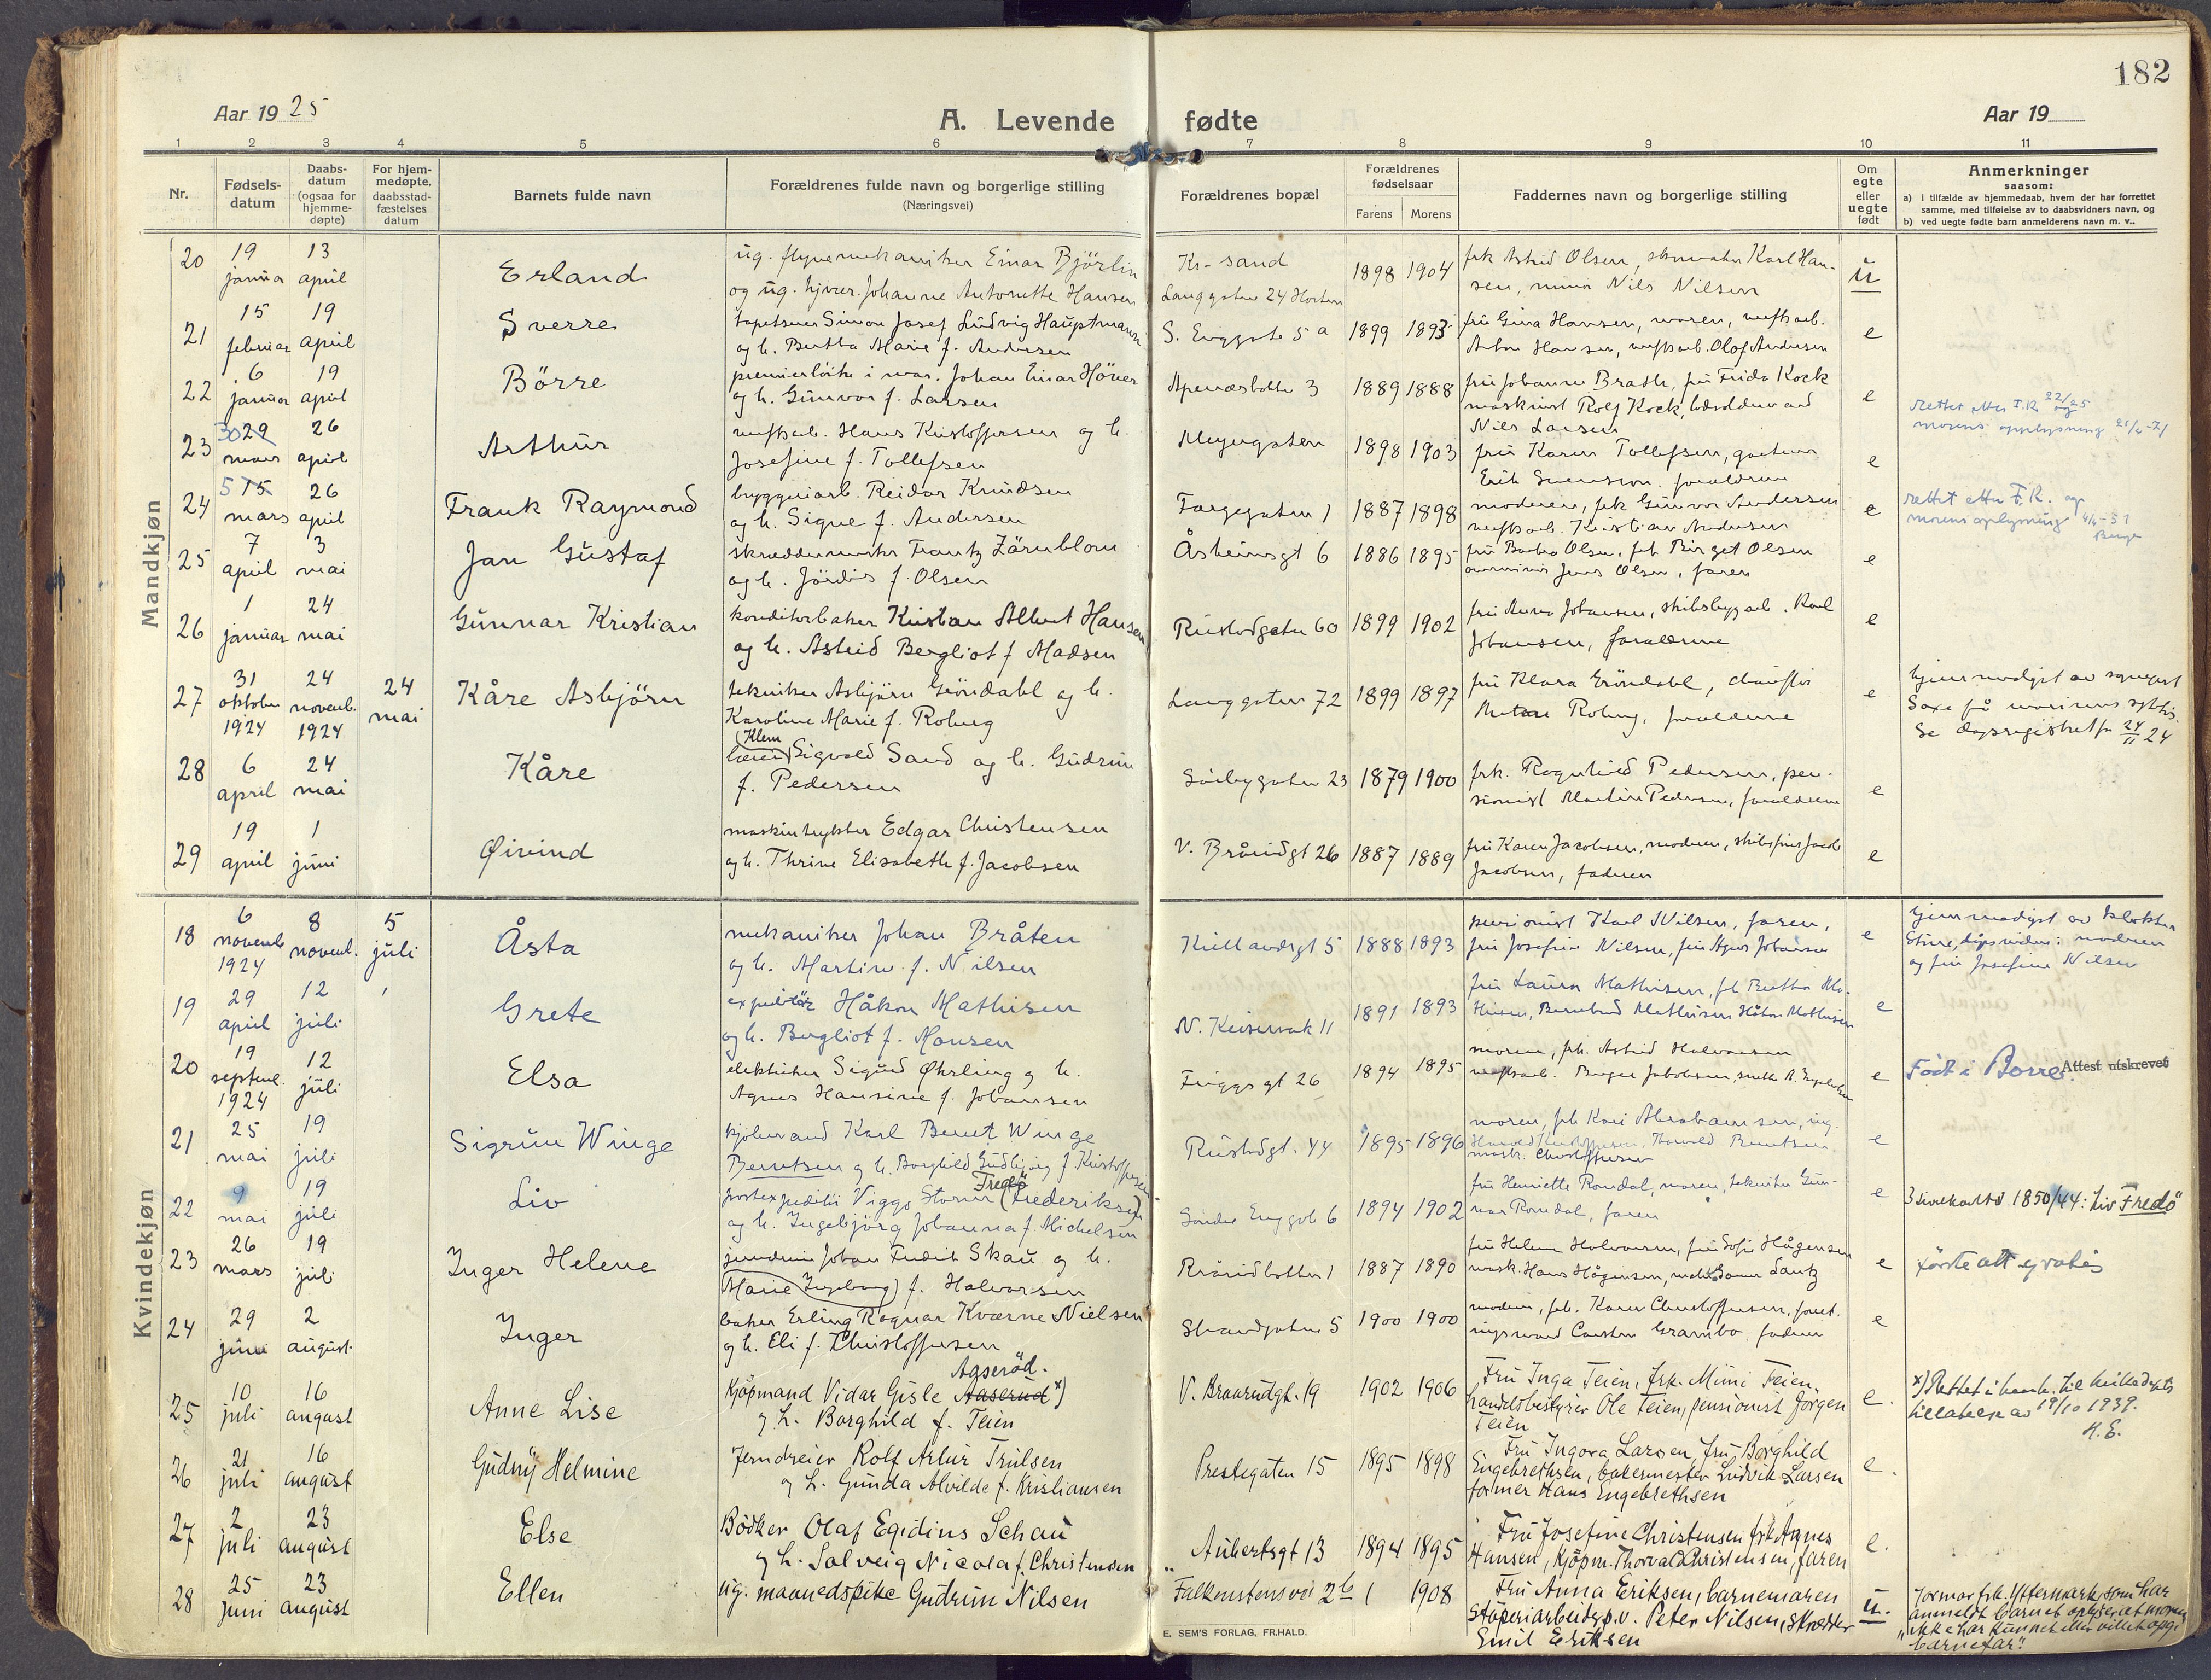 182
Aar 1925
A. Levende fødte
Aar 19
1 2 3 4 5 6 7 8 9 10 11
Nr.
Fødsels-
datum
Daabs-
datum
(ogsaa for
hjemme-
døpte)
For hjem-
medøpte,
daabsstad-
fæstelses
datum
Barnets fulde navn
Forældrenes fulde navn og borgerlige stilling
(Næringsvei)
Forældrenes bopæl
Forældrenes
fødselsaar
Farens Morens
Faddernes navn og borgerlige stilling
Om
egte
eller
uegte
født
Anmerkninger
saasom:
a) i tilfælde av hjemmedaab, hvem der har forrettet
samme, med tilføielse av to daabsvidners navn, og
b) ved uegte fødte barn anmelderens navn m. v..
Mandkjøn
20 19 januar 13 april Erland ug. flyvemekaniker Einar Björlin Kr-sand 1898 1904 frk Astrid Olsen, Karl Han- u
og ug. Johanne Antonette Hansen Langgaten 24 Horten sen, Nils Nilsen
21 15 februar 19 april Sverre tapetserer Simon Josef Ludvig Hauptmann S. Enggate 5 a 1899 1893 fru Gina Hansen, moren, verftsarb. e
og h. Bertha Marie f. Andersen Anton Hansen, verftsarb. Olaf Andersen
22 6 januar 19 april Börre premierløitn i mar. Johan Einar Höver Apenæsbakken 3 1889 1888 fru Johanne Brath, fru Frida Kock e
og h. Gunvor f. Larsen maskinist Rolf Kock,
Nils Larsen
23 30 29 mars 26 april Arthur verftsarb. Hans Kristoffersen og h. Meyergaten 1898 1903 fru Karen Tollefsen, e rettet etter F.R. 22/25 og
Josefine f. Tollefsen Erik Svensson, foreldrene morens opplysning
24 5 15 mars 26 april Frank Raymond bryggeriarb. Reidar Knudsen Færgegaten 1 1887 1898 moderen, frk Gunvor Andersen e rettet etter F.R. og
og h. Signe f. Andersen verftsarb. Kristian Andersen morens oplysning 4/4-51
25 7 april 3 mai Jan Gustaf skreddermester Frantz Zärnblom Åsheimsgt 6 1886 1895 fru Barbra Olsen, frk Birget Olsen e
og h. Jördis f. Olsen Jens Olsen, faren
26 1 januar 24 mai Gunnar Kristian konditorbaker Kristian Albert Hansen Rustadgaten 60 1899 1902 fru Anna Johansen, skibsbyggarb. Karl e
og h. Astrid Bergliot f Madsen Johansen, foreldrene
27 31 oktober 1924 24 novemb. 1924 24 mai Kåre Asbjörn tekniker Asbjörn Gröndahl og h. Langgaten 72 1899 1897 fru Klara Gröndahl, chauffør e hjemmedøpt av sogneprest
Karoline Marie f. Roberg Roberg, foreldrene Saxe på marinens sykehs.
Se dåpsregistret for 24/11 24
28 6 april 24 mai Kåre (Klem
lærer) Sigvald Sand og h. Gudrun 1879 1900 frk. Ragnhild Pedersen, pen- e
f. Pedersen sionist Martin Pedersen, foreldrene
29 19 april 1 juni Øivind maskintrykker Edgar Christensen V. Bråridgt 26 1887 1889 fru Karen Jacobsen, moderen, Jacob e
og h. Thrine Elisabeth f. Jacobsen Jacobsen, faderen
Kvindekjøn
18 6 novemb 1924 8 novemb. 5 juli Åsta mekaniker Johan Bråten 1888 1893 pensionist Karl Nilsen, faren, e hjemmedøpt av klokker
og h. Martine f. Nilsen fru Josefine Nilsen, fru Agnes Johansen moderen
og fru Josefine Nilsen
19 29 april 12 juli Grete expeditör Håkon Mathisen N. Keiservik 11 1891 1893 fru Laura Mathisen, frk Bertha Ma- e
og h. Bergliot f. Hansen thisen, Bernhard Mathisen Håkon Mathisen
20 19 septemb. 1924 12 juli Elsa elektriker Sigurd Øhrling og h. Friggs gt 26 1894 1895 moren, frk. Astrid Halvorsen e Født i Borre Attest utskrevet
Agnes Hansine f. Johansen verftsarb. Birger Jakobsen,
21 25 mai 19 juli Sigrun Winge kjøbmand Karl Bernt Winge Rustadgt. 44 1895 1896 moren, frk Kari Abrahamsen, ing. e
Berntsen og h. Borghild Gudbjörg f. Kristoffersen Harald Kristoffersen, Thorvald Berntsen
mask. Christoffersen
22 9 mai 19 juli Liv postexpeditør Viggo Storm (Frederiksen) Fredö Söndre Enggt 6 1894 1902 fru Henriette Romdal, moren, tekniker Gun- e 3 livekarto 1850/44: Liv Fredö
og h. Ingebjörg Johanna f. Michelsen nar Romdal, faren
23 26 mars 19 juli Inger Helene jerndreier Johan Fredrik Skau og h. Bråridbakken 1 1887 1890 fru Helene Halvorsen, fru Sofie Hågensen e første att gratis
(Marie Ingeborg) f. Halvorsen mask. Hans Hågensen, Lantz
24 29 juni 2 august Inger baker Erling Ragnar Kværne Nielsen Strandgaten 5 1900 1900 moderen, frk. Karen Christoffersen, forret- e
og h. Eli f. Christoffersen ningsmand Carsten Grambo, faderen
25 10 juli 16 august Anne Lise Kjöpmand Vidar Gisle Aaserud x) Aaseröd. V. Braarudgt. 19 1902 1906 Fru Inga Teien, frk. Mimi Teien, e. x) Rettet i henh. til
g h. Borghild f. Teien handelsbestyrer Ole Teien, pensionist Jörgen tillatelse av 19/10 1939.
Teien H.E.
26 21 juli 16 august Gudny Helmine Jerndreier Rolf Artur Trulsen Prestegaten 15 1895 1898 Fru Ingora Larsen, fru Borghild e.
g h. Gunda Alvilde f. Kristiansen Engebrethsen, bakermester Ludvik Larsen
former Hans Engebrethsen
27 2 juli 23 august Else Bödker Olaf Egidius Schau Aubertsgt 13 1894 1895 Fru Josefine Christensen frk Agnes e.
g h. Solveig Nicola f. Christensen Hansen, Kjöpm. Thorvald Christensen, faren
28 25 juni 23 august Ellen ug. maanedspike Gudrun Nilsen Falkenstensvei 2 b 1908 Fru Anna Eriksen, barnemoren u. Jormor frk. Yttermark, som har
Stöperiarbeider p.v. Peter Nilsen, Skredder anmeldt barnet oplyser at moren
Emil Eriksen "ikke har kunnet eller villet opgi
barnefar".
E. SEM'S FORLAG, FR.HALD.